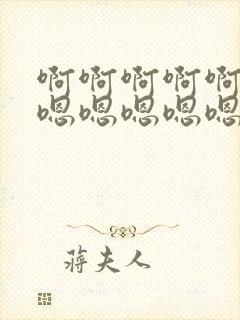 啊啊啊啊啊
嗯嗯嗯嗯嗯
蒋夫人